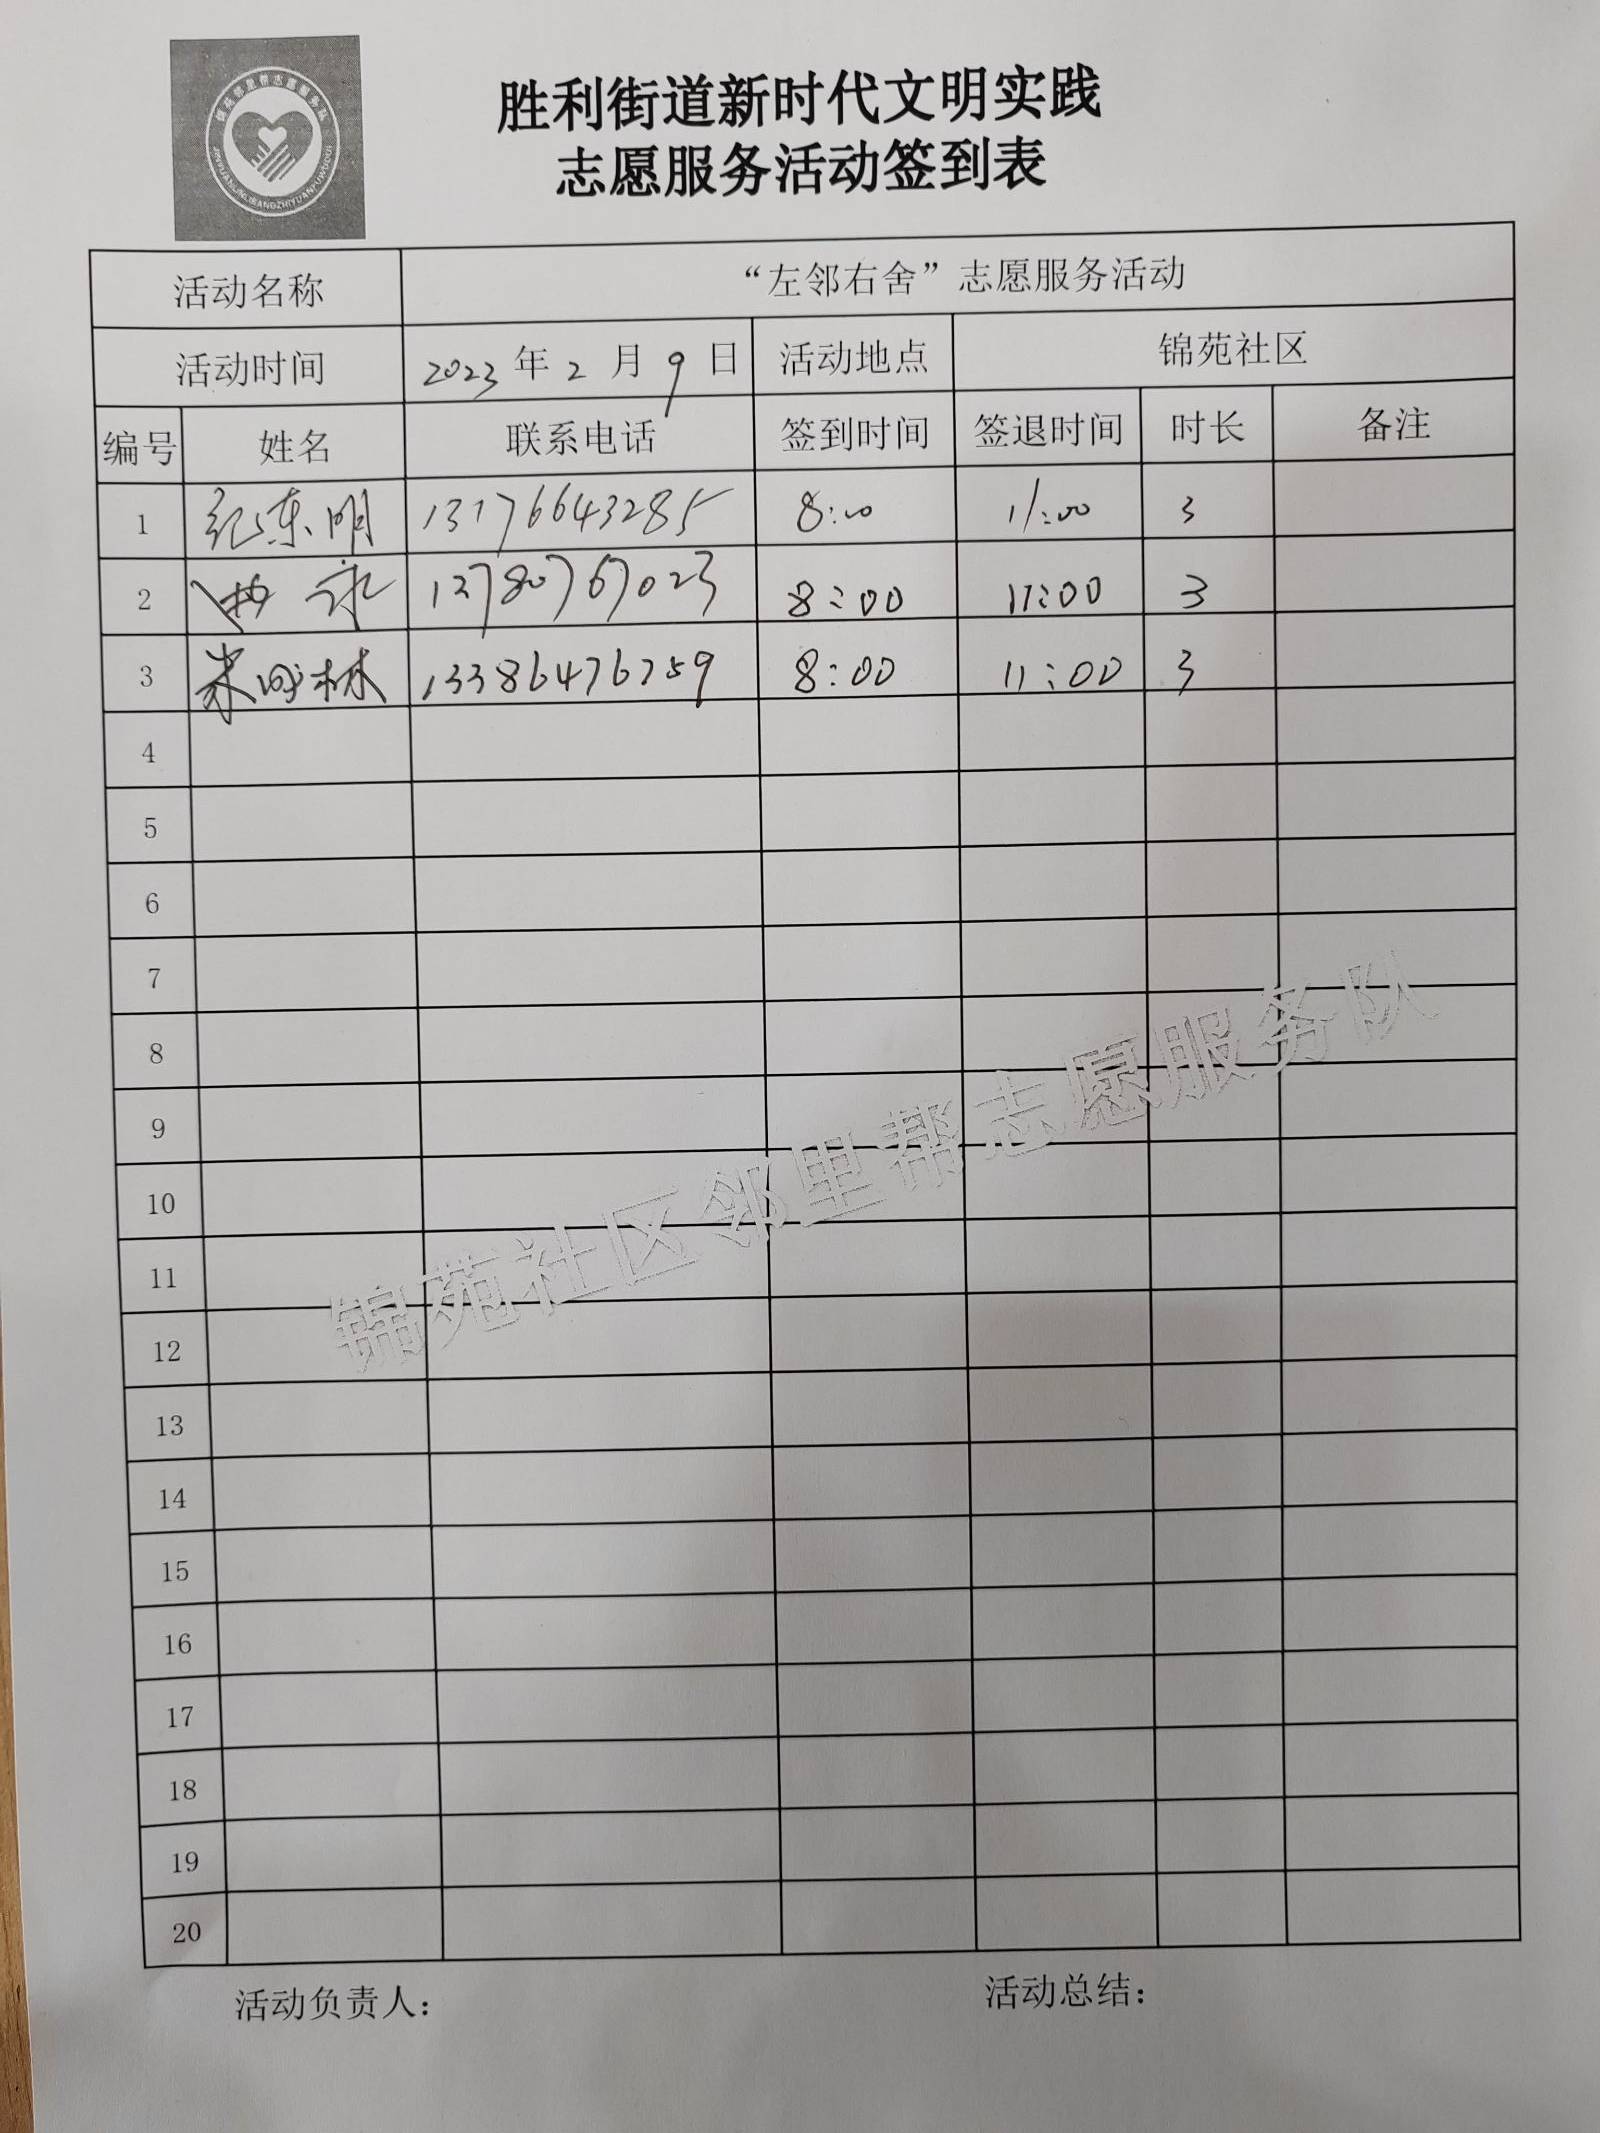 锦苑邻里帮志愿服务队
JINYUANLINLIBANGZHIYUANFUWUDUI
胜利街道新时代文明实践
志愿服务活动签到表
活动名称 “左邻右舍”志愿服务活动
活动时间 2023 年 2 月 9 日 活动地点 锦苑社区
编号 姓名 联系电话 签到时间 签退时间 时长 备注
1 纪东明 13176643285 8:00 11:00 3
2 8:00 11:00 3
3 13386476259 8:00 11:00 3
4
5
6
7
8
9
10
11
12
13
14
15
16
17
18
19
20
锦苑社区邻里帮志愿服务队
活动负责人： 活动总结：